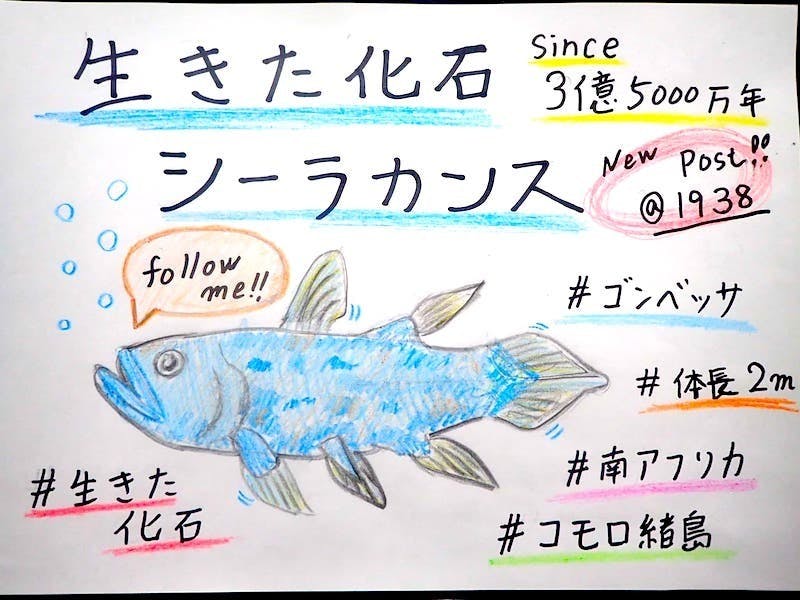 生きた化石
since
3億5000万年
シーラカンス
New Post!!
@1938
follow
me!!
#ゴンベッサ
#体長2m
#南アフリカ
#コモロ緒島
#生きた
化石